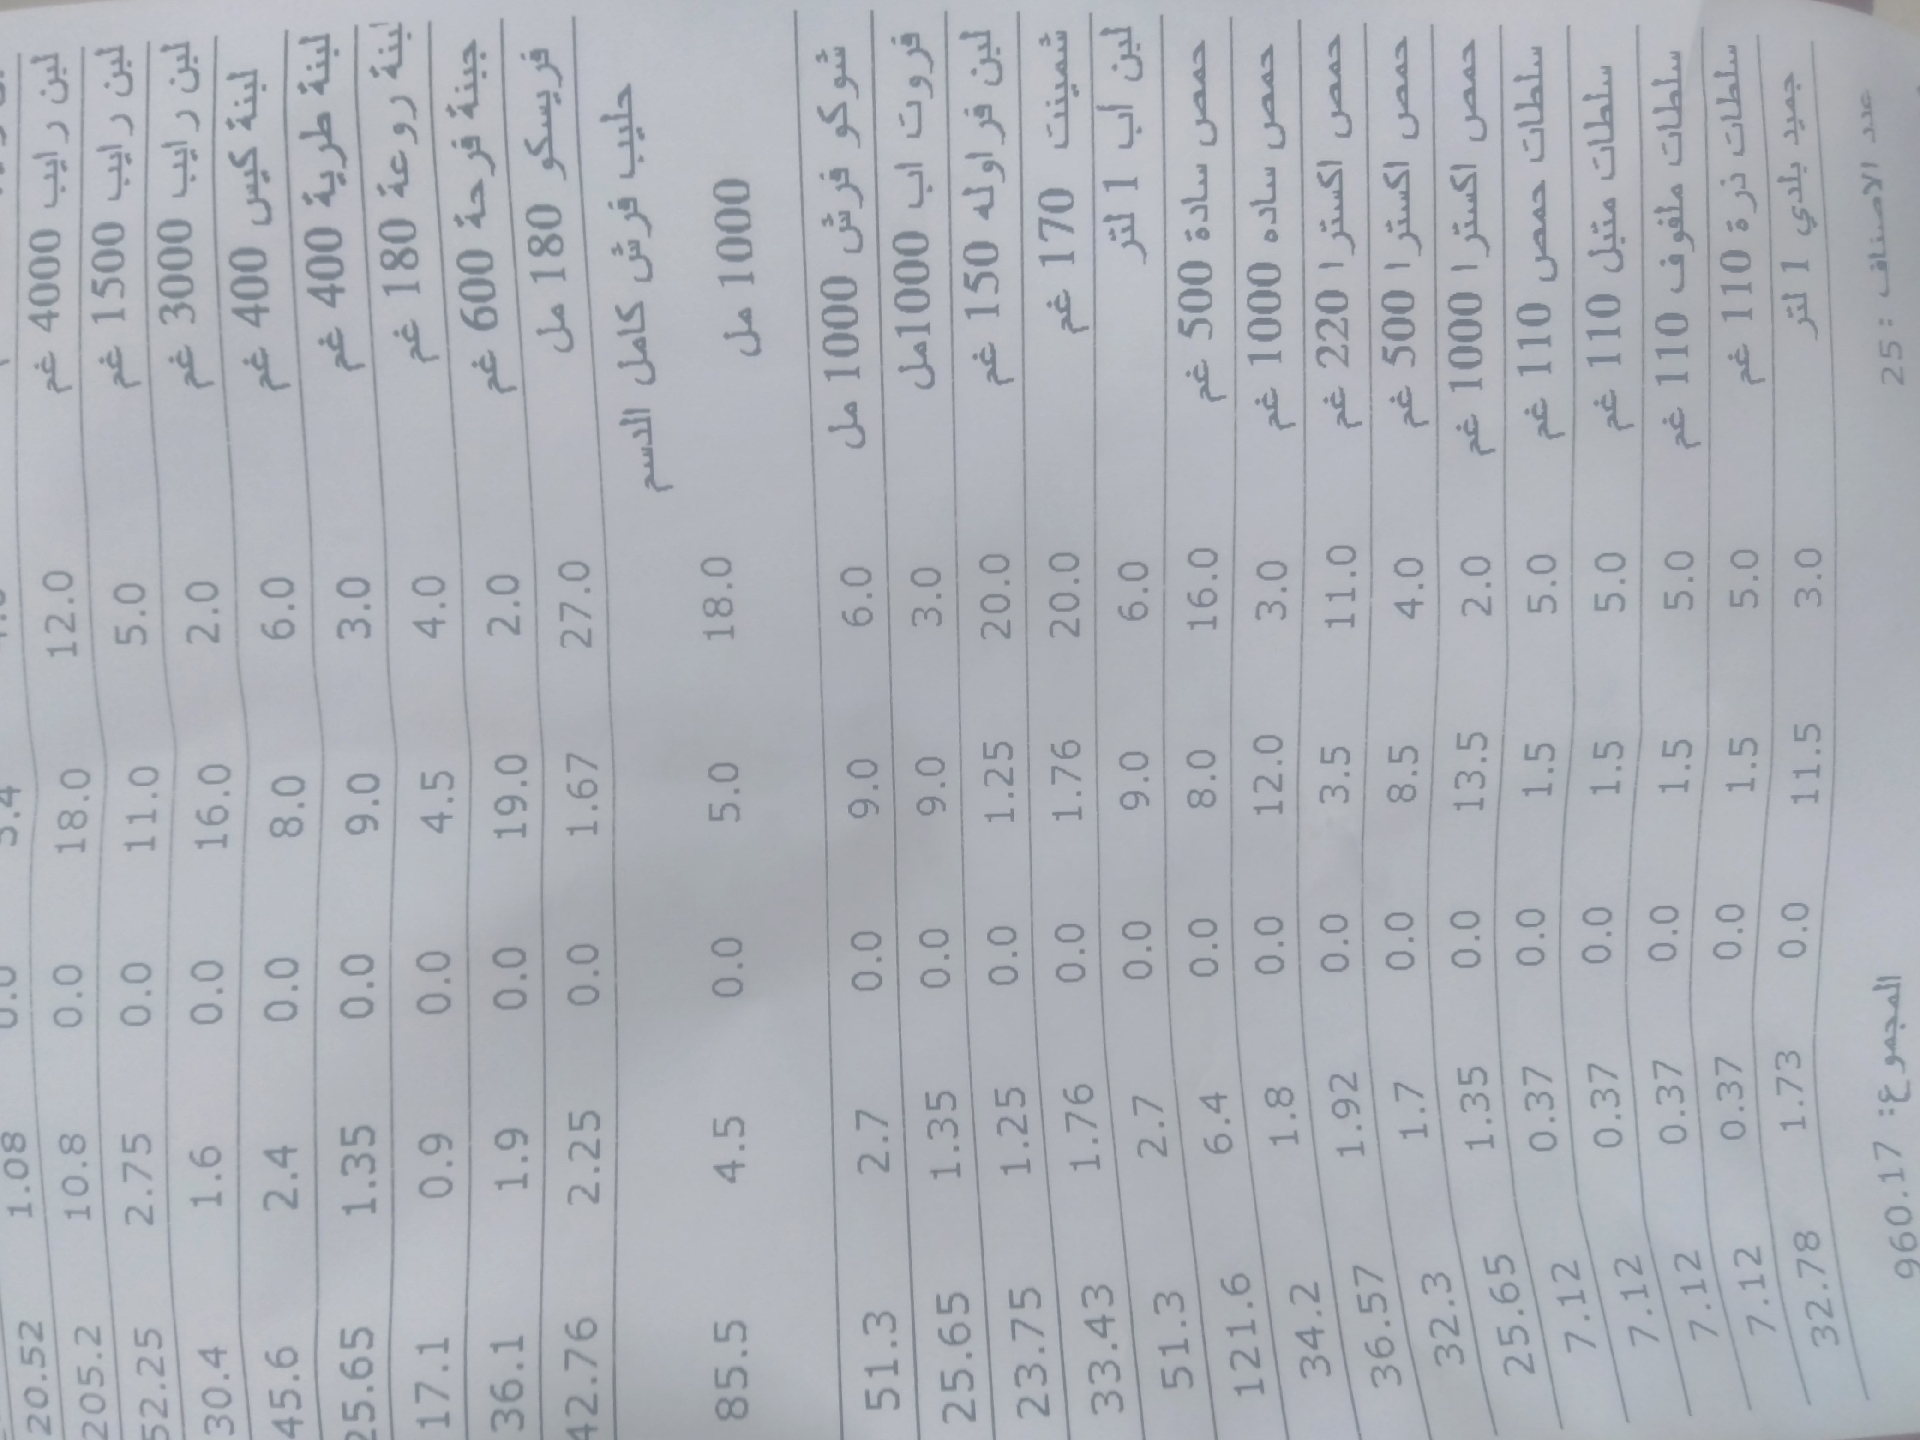 20.52 1.08 0.0 5.4
لبن رايب 4000 غم 12.0 18.0 0.0 10.8 205.2
لبن رايب 1500 غم 5.0 11.0 0.0 2.75 52.25
لبن رايب 3000 غم 2.0 16.0 0.0 1.6 30.4
لبنة كيس 400 غم 6.0 8.0 0.0 2.4 45.6
لبنة طرية 400 غم 3.0 9.0 0.0 1.35 25.65
لبنة روعة 180 غم 4.0 4.5 0.0 0.9 17.1
جبنة فرحة 600 غم 2.0 19.0 0.0 1.9 36.1
فريسكو 180 مل 27.0 1.67 0.0 2.25 42.76
حليب فرش كامل الدسم
1000 مل 18.0 5.0 0.0 4.5 85.5
شوكو فرش 1000 مل 6.0 9.0 0.0 2.7 51.3
فروت اب 1000مل 3.0 9.0 0.0 1.35 25.65
لبن فراوله 150 غم 20.0 1.25 0.0 1.25 23.75
شمينت 170 غم 20.0 1.76 0.0 1.76 33.43
لبن اب 1 لتر 6.0 9.0 0.0 2.7 51.3
حمص سادة 500 غم 16.0 8.0 0.0 6.4 121.6
حمص ساده 1000 غم 3.0 12.0 0.0 1.8 34.2
حمص اكسترا 220 غم 11.0 3.5 0.0 1.92 36.57
حمص اكسترا 500 غم 4.0 8.5 0.0 1.7 32.3
حمص اكسترا 1000 غم 2.0 13.5 0.0 1.35 25.65
سلطات حمص 110 غم 5.0 1.5 0.0 0.37 7.12
سلطات متبل 110 غم 5.0 1.5 0.0 0.37 7.12
سلطات ملفوف 110 غم 5.0 1.5 0.0 0.37 7.12
سلطات ذرة 110 غم 5.0 1.5 0.0 0.37 7.12
جميد بلدي 1 لتر 3.0 11.5 0.0 1.73 32.78
عدد الاصناف : 25 المجموع: 960.17